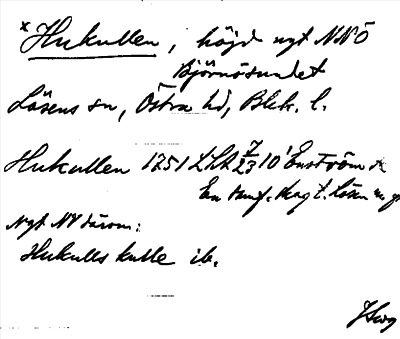 *Hukullen, höjd ngt NNÖ
Björnösundet
Lösens sn, Östra hd, Blek. l.
Hukullen 1251 LSA 7/23 10 Enström
En kumf. t. Lösen
Ngt NV därom:
Hukulls kulle ib.